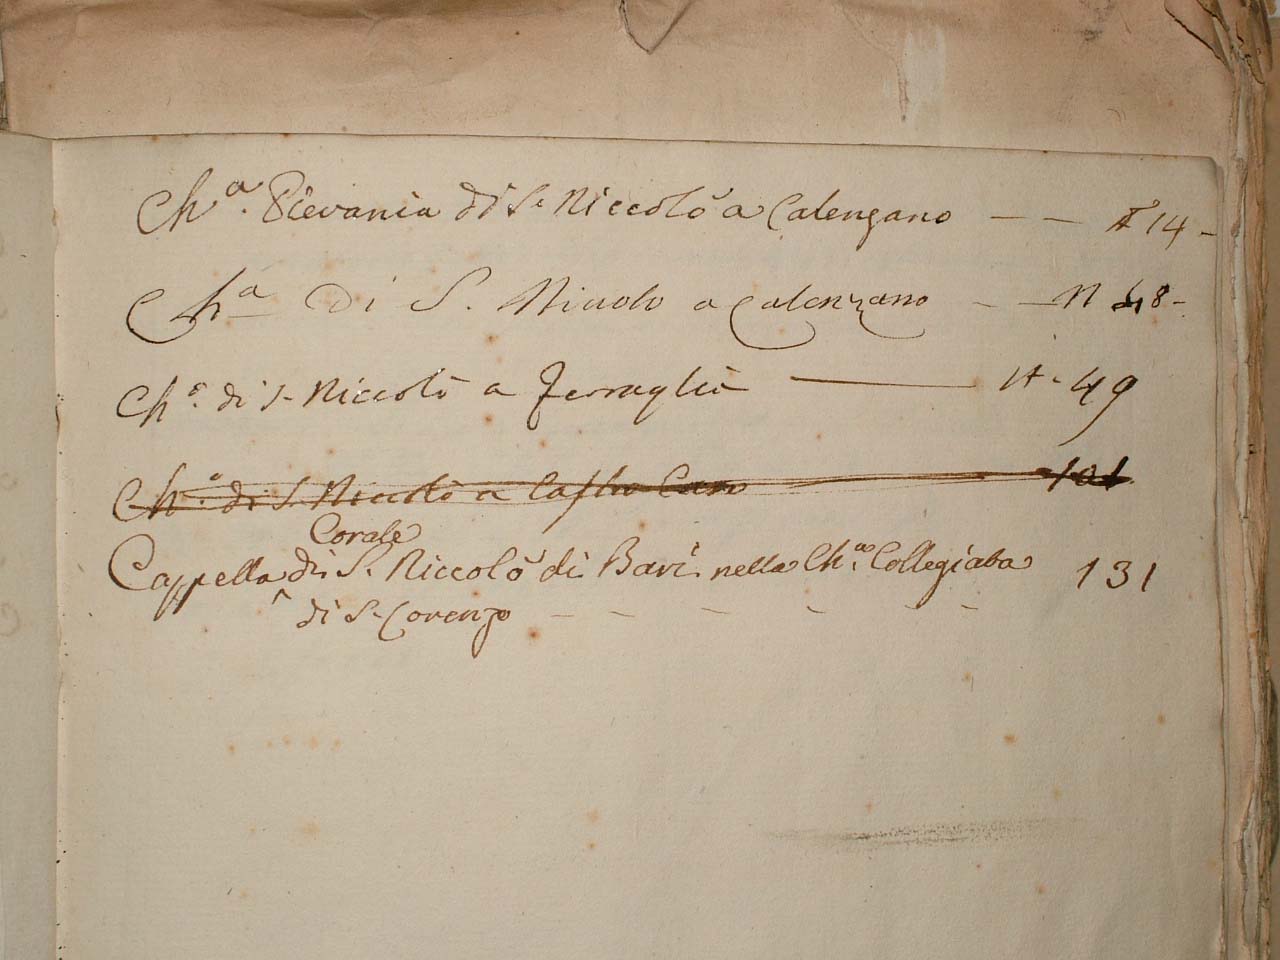 Ch.ª Pievania di S. Niccolò a Calenzano — — N 14 -
Ch.ª Di S. Niccolo a Calenzano - — N 48 -
Ch.ª di S. Niccolò a Ferraglia — N. 49
Ch.ª di S. Niccolò a Castro Caro 101
Corale
Cappella di S. Niccolò di Bari nella Ch.ª Collegiata 131
di S. Lorenzo - - - - - -